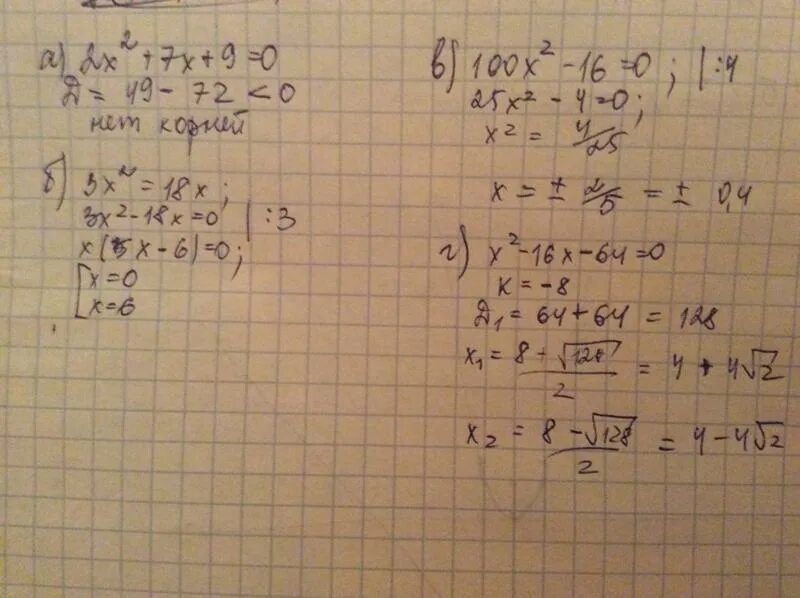 а) 2x² + 7x + 9 = 0
Д = 49 - 72 < 0
нет корней
б) 3x² = 18x;
3x² - 18x = 0 | :3
x(x - 6) = 0;
[x = 0
x = 6
в) 100x² - 16 = 0; | :4
25x² - 4 = 0;
x² = 4/25
x = ± 2/5 = ± 0,4
г) x² - 16x - 64 = 0
k = -8
Д₁ = 64 + 64 = 128
x₁ = (8 + √128)/2 = 4 + 4√2
x₂ = (8 - √128)/2 = 4 - 4√2